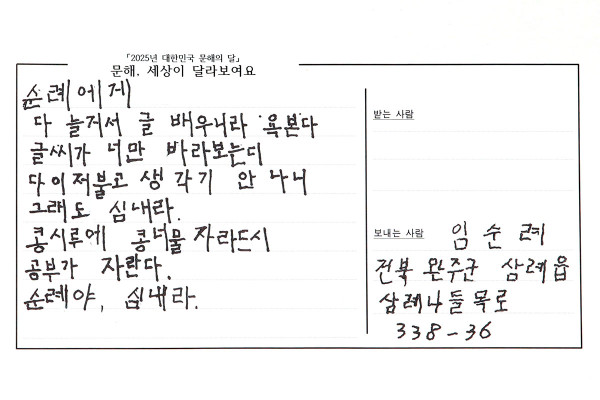 「2025년 대한민국 문해의 달」
문해. 세상이 달라보여요
순례에게
다 늘거서 글 배우니라 욕본다
글씨가 너만 바라보는디
다 이저불고 생각기 안 나니
그래도 심내라.
콩시루에 콩너물 자라드시
공부가 자란다.
순례야, 심내라.
받는 사람
보내는 사람 임순례
전북 완주군 삼례읍
삼례나들목로
338-36